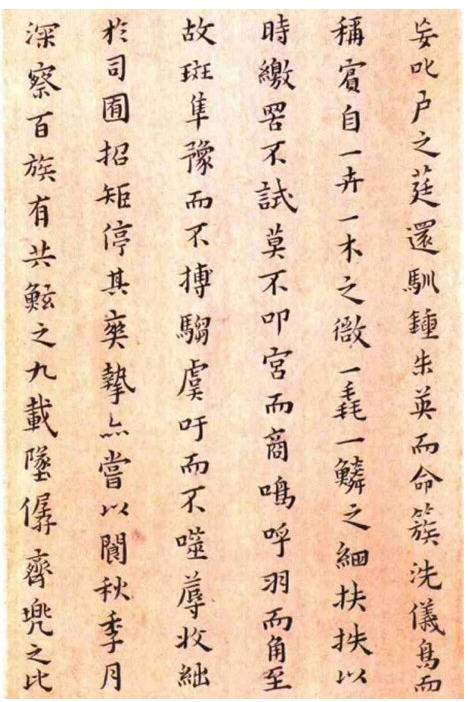 妄叱户之莛還馴鍾生英而命簇洗儀鳥而
稱賓自一卉一木之微一毳一鱗之細扶扶以
時繳罟不試莫不叩宮而商鳴呼羽而角至
故斑隼豫而不搏騶虞吁而不噬蓐收絀
於司圃招矩停其爽摯亦嘗以閬秋季月
深察百族有共鮌之九載墜僝齊兠之比